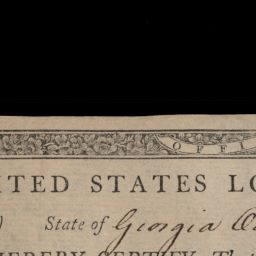 OFFI
NITED STATES LO
) State of Georgia
HEREBY CERTIFY, Th